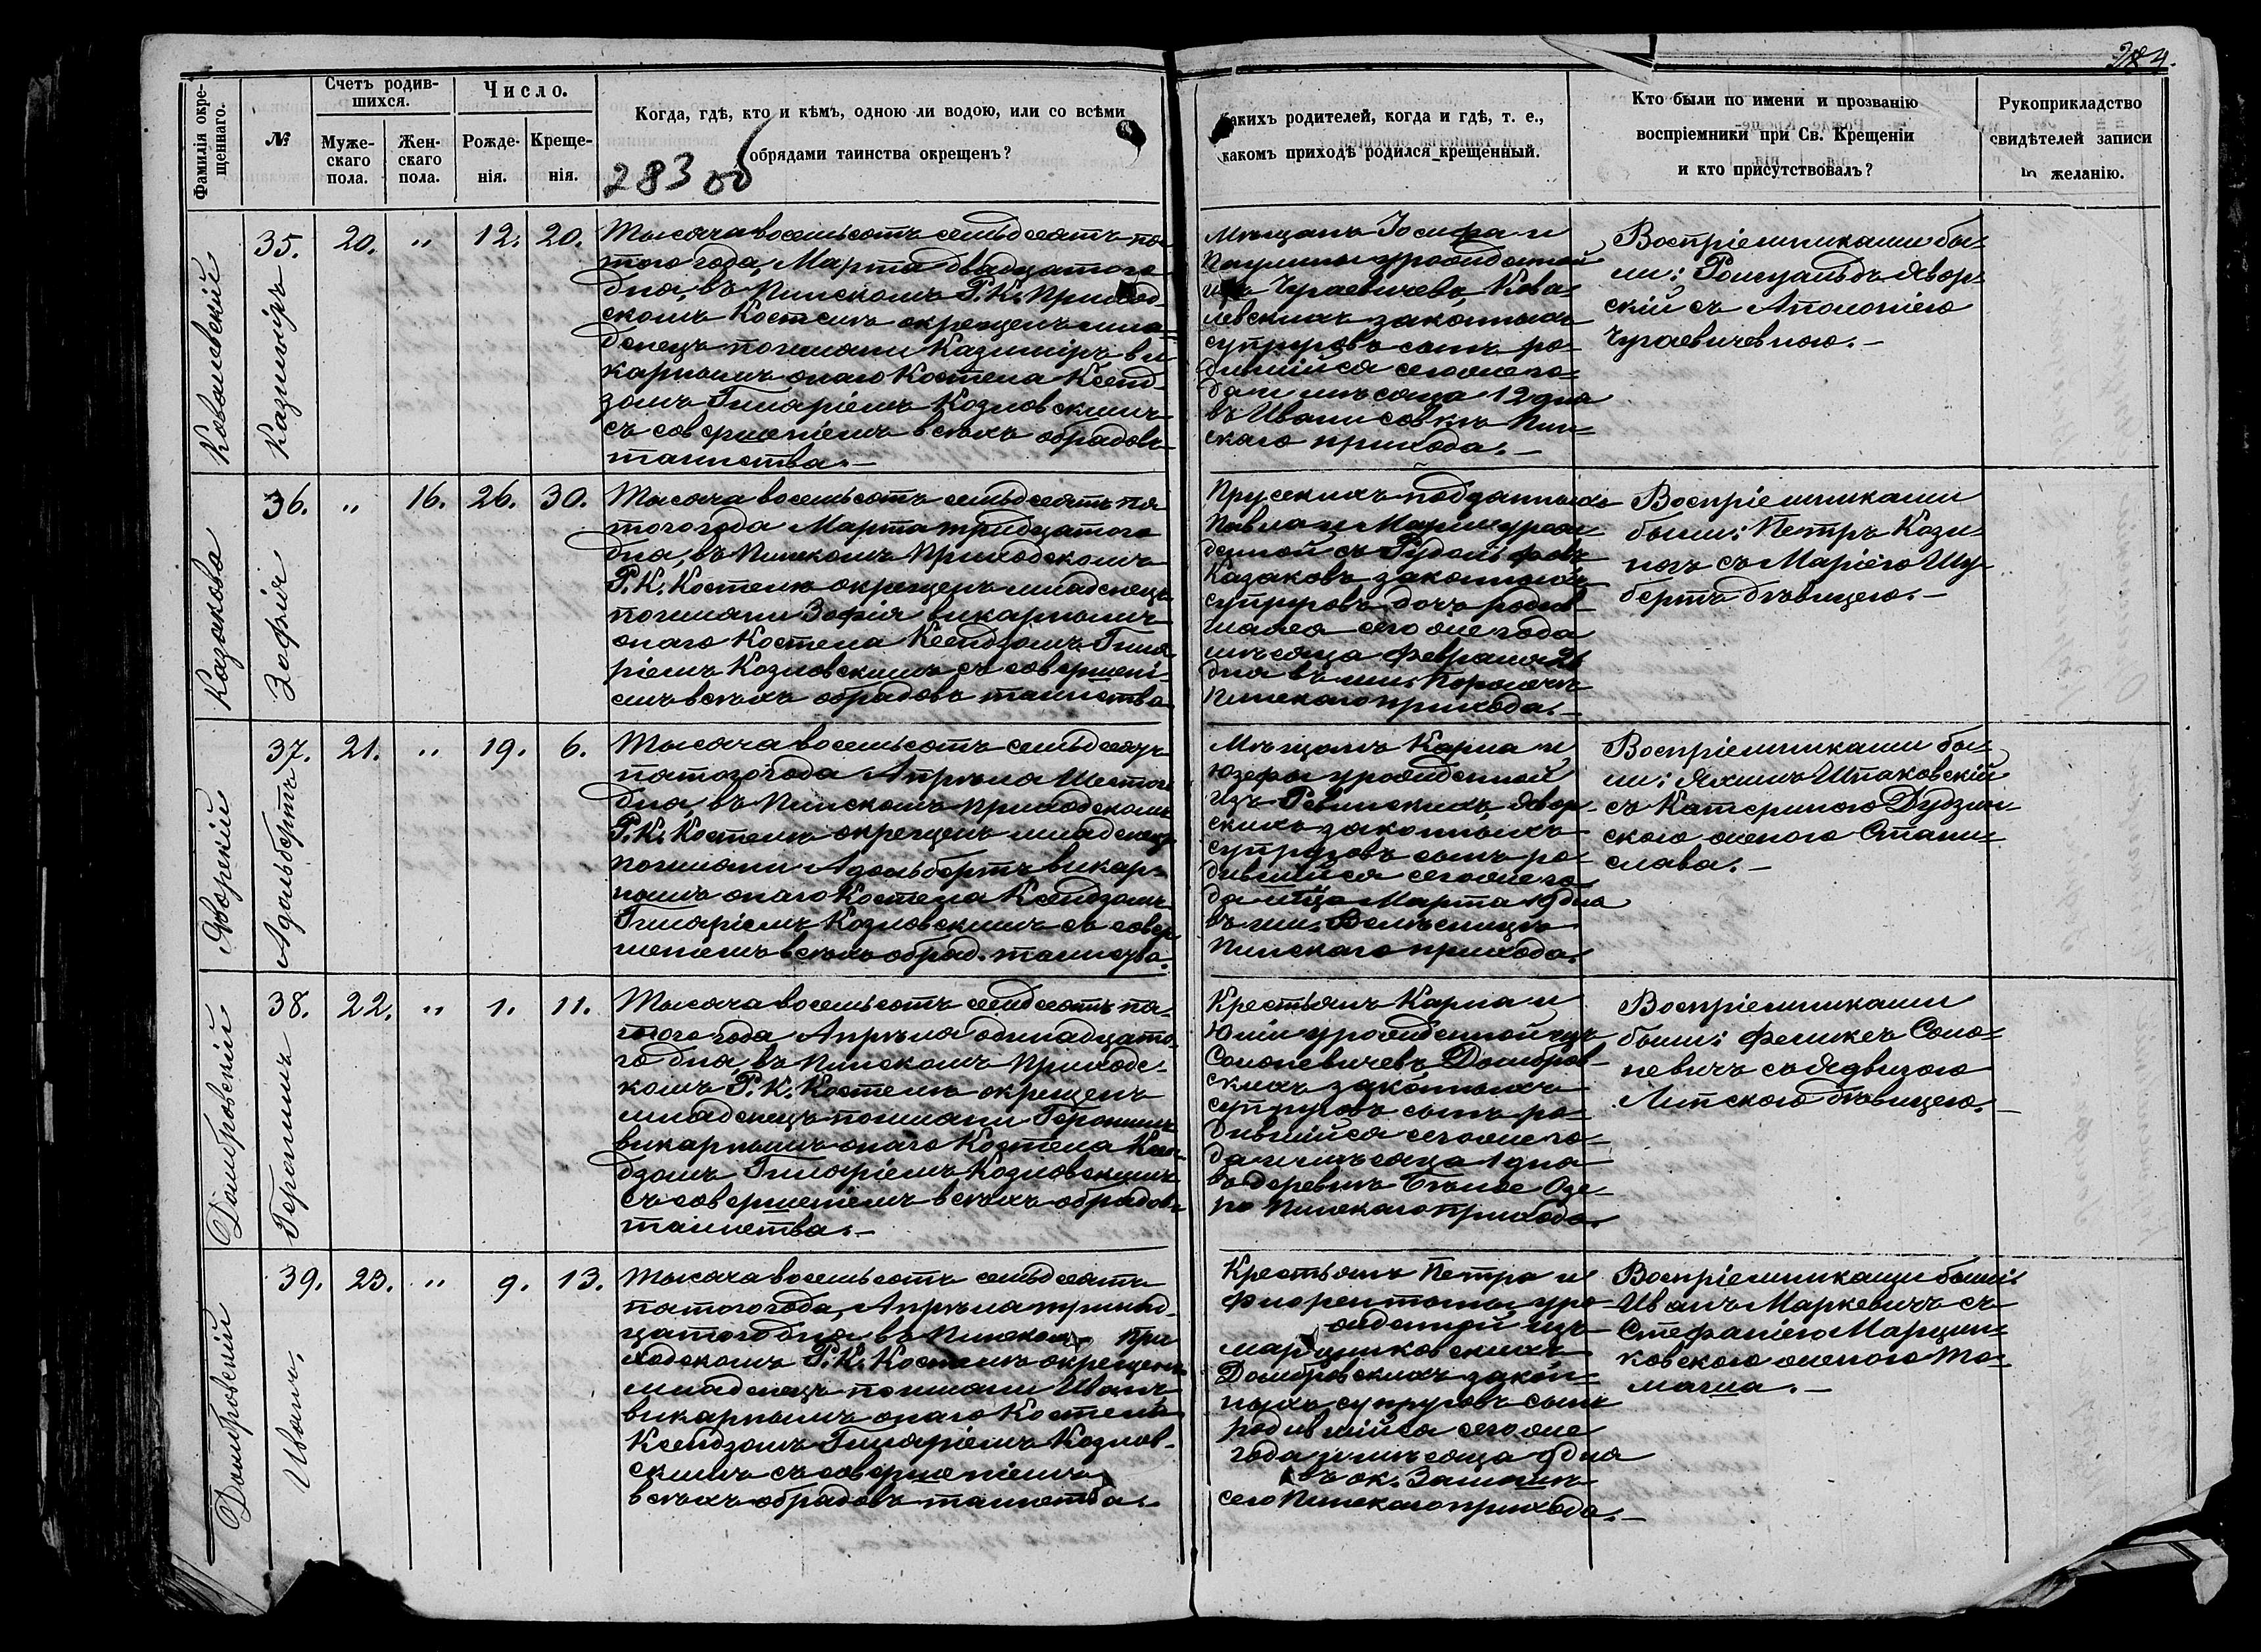 384.
Фамилія окре-
щеннаго.
№
Счетъ родив-
шихся.
Муже-
скаго
пола.
Жен-
скаго
пола.
Число.
Рожде-
нія.
Креще-
нія.
Когда, гдѣ, кто и кѣмъ, одною ли водою, или со всѣми
обрядами таинства окрещенъ?
283 об
какихъ родителей, когда и гдѣ, т. е.,
какомъ приходѣ родился крещенный.
Кто были по имени и прозванію
воспріемники при Св. Крещеніи
и кто присутствовалъ?
Рукоприкладство
свидѣтелей записи
по желанію.
Ковалевскій
Казимиръ
35. 20. " 12. 20.
Тысяча восемьсотъ семьдесятъ пя
того года, Марта двадцатого
дня, въ Пинскомъ Р. К. Приход-
скомъ Костелѣ окрещенъ мла-
денецъ поимани Казимиръ ви
карнымъ онаго Костела Ксенд-
зомъ Гиляріемъ Козловскимъ
съ совершеніемъ всѣхъ обрядовъ
таинства.—
Мѣщанъ Іосифа и
Паулины урожденной
изъ Чураевичевъ, Кова-
левскихъ законныхъ
супруговъ сынъ ро-
дившійся сего же го-
да и мѣсяца 12 дня
въ Иванисовкѣ Пин-
скаго прихода.—
Воспріемниками бы-
ли: Ромуальдъ Явор-
скій съ Аполоніею
Чураевичевною.—
Казакова
Зофія
36. " 16. 26. 30.
Тысяча восемьсотъ семьдесятъ пя
того года Марта тридцатого
дня, въ Пинскомъ Приходскомъ
Р. К. Костелю окрещенъ младенецъ
поимани Зофія викарнымъ
онаго Костела Ксендзомъ Гиля
ріемъ Козловскимъ съ совершені-
емъ всѣхъ обрядовъ таинства
Прусскихъ подданныхъ
Павла и Маріи урож-
денной съ Рудольфовъ
Казаковъ законныхъ
супруговъ дочь родив-
шаяся сего же года
мѣсяца февраля 26
дня въ им. Поромчъ
Пинскаго прихода.—
Воспріемниками
были: Петръ Кази-
нъ съ Маріею Шу-
бертъ дѣвицею.—
Яворскій
Адальбертъ
37. 21. " 19. 6.
Тысяча восемьсотъ семьдесятъ
пятого года Апрѣля Шестого
дня, въ Пинскомъ приходскомъ
Р. К. Костелѣ окрещенъ младенецъ
поимани Адальбертъ викар-
нымъ онаго Костела Ксендзомъ
Гиляріемъ Козловскимъ съ совер
шенемъ всѣхъ обряд. таинства.
Мѣщанъ Карла и
Юзефы урожденной
изъ Ревинскихъ, Явор-
скихъ законныхъ
супруговъ сынъ ро-
дившійся сего же го-
да мца Марта 19 дня
въ им. Велѣсницѣ
Пинскаго прихода.
Воспріемниками бы-
ли: Яхимъ Шпаковскій
съ Катериною Дудзин-
скою женою Стани-
слава.—
Домбровскій
Геронимъ
38. 22. " 1. 11.
Тысяча восемьсотъ семдесятъ пя-
того года Апрѣля одинадцато-
го дня, въ Пинскомъ Приходс-
комъ Р. К. Костелѣ окрещенъ
младенецъ поимани Геронимъ
викарнымъ онаго Костела Ксен-
дзомъ Гиляріемъ Козловскимъ
съ совершеніемъ всѣхъ обрядовъ
таинства.—
Крестьянъ Карла и
Юліи урожденной изъ
Солоневичевъ, Домбров-
скихъ законныхъ
супруговъ сынъ ро-
дившійся сего же го-
да и мѣсяца 1 дня
въ деревнѣ Бѣлое Озе-
ро Пинскаго прихода.
Воспріемниками
были: Феликсъ Соло-
невичъ съ Ядвигою
Липскою дѣвицею.
Домбровскій
Иванъ.
39. 23. " 9. 13.
Тысяча восемьсотъ семьдесятъ
пятого года, Апрѣля тринад-
цатого дня въ Пинском При
ходскомъ Р. К. Костелѣ окрещенъ
младенецъ поимани Иванъ
викарнымъ онаго Костела
Ксендзомъ Гиляріемъ Козлов-
скимъ съ совершеніемъ
всѣхъ обрядовъ таинства.
Крестьянъ Петра и
Флорентины уро-
жденной изъ
Марцинковскихъ
Домбровскихъ закон-
ныхъ супруговъ сынъ
родившійся сего же
года и мѣсяца 9 дня
въ ок. Заминѣ
сего Пинскаго прихода.—
Воспріемниками были:
Иванъ Маркевичъ съ
Стефаніею Марцин-
ковскою женою То-
маша.—